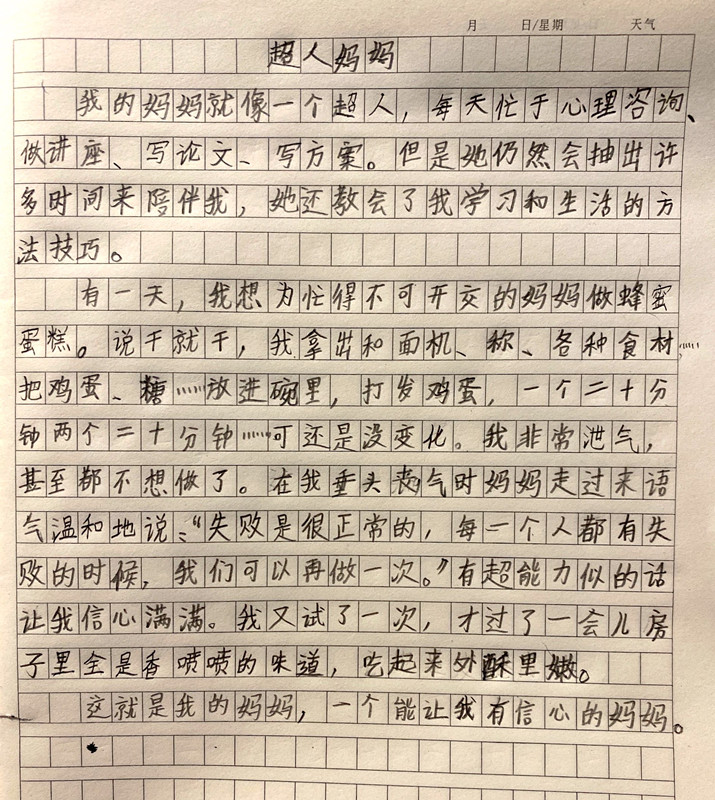 月 日/星期 天气
超人妈妈
我的妈妈就像一个超人，每天忙于心理咨询、
做讲座、写论文、写方案。但是她仍然会抽出许
多时间来陪伴我，她还教会了我学习和生活的方
法技巧。
有一天，我想为忙得不可开交的妈妈做蜂蜜
蛋糕。说干就干，我拿出和面机、称、各种食材……
把鸡蛋、糖……放进碗里，打发鸡蛋，一个二十分
钟两个二十分钟……可还是没变化。我非常泄气，
甚至都不想做了。在我垂头丧气时妈妈走过来语
气温和地说：“失败是很正常的，每一个人都有失
败的时候，我们可以再做一次。”有超能力似的话
让我信心满满。我又试了一次，才过了一会儿房
子里全是香喷喷的味道，吃起来外酥里嫩。
这就是我的妈妈，一个能让我有信心的妈妈。